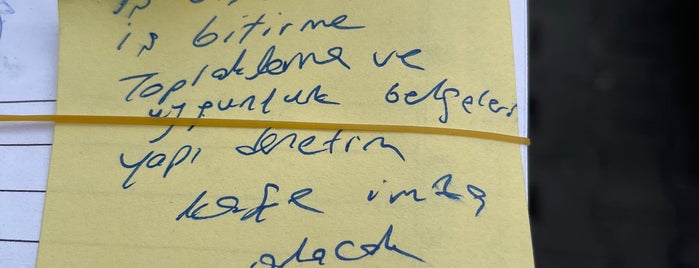 iş bitirme
Topraklama ve
uygunluk belgeleri
yapı denetim
kaşe imza
olacak